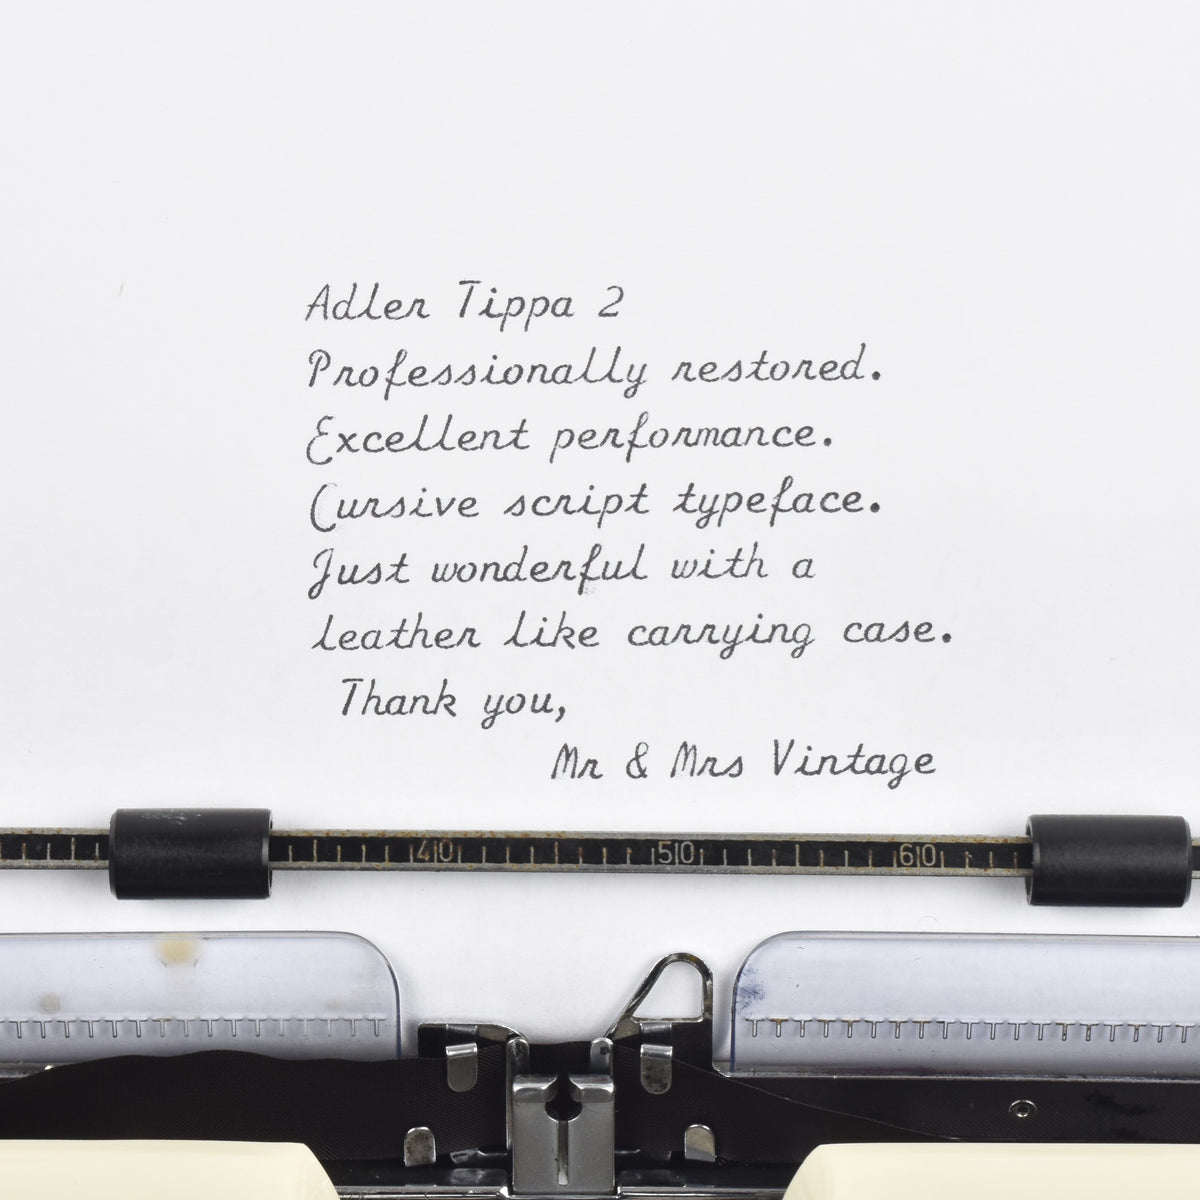 Adler Tippa 2
Professionally restored.
Excellent performance.
Cursive script typeface.
Just wonderful with a
leather like carrying case.
Thank you,
Mr & Mrs Vintage
40 50 60